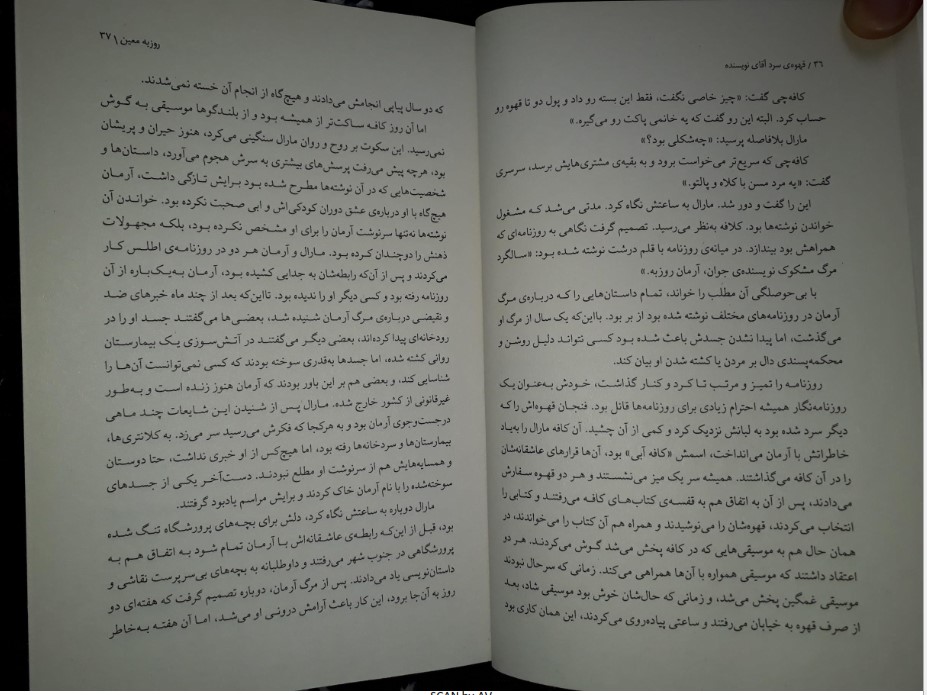 ۳۶ / قهوه‌ی سرد آقای نویسنده
کافه‌چی گفت: «چیز خاصی نگفت، فقط این بسته رو داد و پول دو تا قهوه رو
حساب کرد. البته این رو گفت که یه خانمی پاکت رو می‌گیره.»
مارال بلافاصله پرسید: «چه‌شکلی بود؟»
کافه‌چی که سریع‌تر می‌خواست برود و به بقیه‌ی مشتری‌هایش برسد، سرسری
گفت: «یه مرد مسن با کلاه و پالتو.»
این را گفت و دور شد. مارال به ساعتش نگاه کرد. مدتی می‌شد که مشغول
خواندن نوشته‌ها بود. کلافه به‌نظر می‌رسید. تصمیم گرفت نگاهی به روزنامه‌ای که
همراهش بود بیندازد. در میانه‌ی روزنامه با قلم درشت نوشته شده بود: «سالگرد
مرگ مشکوک نویسنده‌ی جوان، آرمان روزبه.»
با بی‌حوصلگی آن مطلب را خواند، تمام داستان‌هایی را که درباره‌ی مرگ
آرمان در روزنامه‌های مختلف نوشته شده بود از بر بود. بااین‌که یک سال از مرگ او
می‌گذشت، اما پیدا نشدن جسدش باعث شده بود کسی نتواند دلیل روشن و
محکمه‌پسندی دال بر مردن یا کشته شدن او بیان کند.
روزنامه را تمیز و مرتب تا کرد و کنار گذاشت، خودش به‌عنوان یک
روزنامه‌نگار همیشه احترام زیادی برای روزنامه‌ها قائل بود. فنجان قهوه‌اش را که
دیگر سرد شده بود به لبانش نزدیک کرد و کمی از آن چشید. آن کافه مارال را به‌یاد
خاطراتش با آرمان می‌انداخت، اسمش «کافه آبی» بود، آن‌ها قرارهای عاشقانه‌شان
را در آن کافه می‌گذاشتند. همیشه سر یک میز می‌نشستند و هر دو قهوه سفارش
می‌دادند، پس از آن به اتفاق هم به قفسه‌ی کتاب‌های کافه می‌رفتند و کتابی را
انتخاب می‌کردند، قهوه‌شان را می‌نوشیدند و همراه هم آن کتاب را می‌خواندند، در
همان حال هم به موسیقی‌هایی که در کافه پخش می‌شد گوش می‌کردند. هر دو
اعتقاد داشتند که موسیقی همواره با آن‌ها همراهی می‌کند. زمانی که سرحال نبودند
موسیقی غمگین پخش می‌شد، و زمانی که حال‌شان خوش بود موسیقی شاد، بعد
از صرف قهوه به خیابان می‌رفتند و ساعتی پیاده‌روی می‌کردند، این همان کاری بود
روزبه معین \ ۳۷
که دو سال پیاپی انجامش می‌دادند و هیچ‌گاه از انجام آن خسته نمی‌شدند.
اما آن روز کافه ساکت‌تر از همیشه بود و از بلندگوها موسیقی به گوش
نمی‌رسید. این سکوت بر روح و روان مارال سنگینی می‌کرد، هنوز حیران و پریشان
بود، هرچه پیش می‌رفت پرسش‌های بیشتری به سرش هجوم می‌آورد، داستان‌ها و
شخصیت‌هایی که در آن نوشته‌ها مطرح شده بود برایش تازگی داشت، آرمان
هیچ‌گاه با او درباره‌ی عشق دوران کودکی‌اش و ابی صحبت نکرده بود. خواندن آن
نوشته‌ها نه‌تنها سرنوشت آرمان را برای او مشخص نکرده بود، بلکه مجهولات
ذهنش را دوچندان کرده بود. مارال و آرمان هر دو در روزنامه‌ی اطلس کار
می‌کردند و پس از آن‌که رابطه‌شان به جدایی کشیده بود، آرمان به‌یک‌باره از آن
روزنامه رفته بود و کسی دیگر او را ندیده بود. تااین‌که بعد از چند ماه خبرهای ضد
و نقیضی درباره‌ی مرگ آرمان شنیده شد، بعضی‌ها می‌گفتند جسد او را در
رودخانه‌ای پیدا کرده‌اند، بعضی دیگر می‌گفتند در آتش‌سوزی یک بیمارستان
روانی کشته شده، اما جسدها به‌قدری سوخته بودند که کسی نمی‌توانست آن‌ها را
شناسایی کند، و بعضی هم بر این باور بودند که آرمان هنوز زنده است و به‌طور
غیرقانونی از کشور خارج شده. مارال پس از شنیدن این شایعات چند ماهی
درجست‌وجوی آرمان بود و به هرکجا که فکرش می‌رسید سر می‌زد. به کلانتری‌ها،
بیمارستان‌ها و سردخانه‌ها رفته بود، اما هیچ‌کس از او خبری نداشت، حتا دوستان
و همسایه‌هایش هم از سرنوشت او مطلع نبودند. دست‌آخر یکی از جسدهای
سوخته‌شده را با نام آرمان خاک کردند و برایش مراسم یادبود گرفتند.
مارال دوباره به ساعتش نگاه کرد، دلش برای بچه‌های پرورشگاه تنگ شده
بود، قبل از این‌که رابطه‌ی عاشقانه‌اش با آرمان تمام شود به اتفاق هم به
پرورشگاهی در جنوب شهر می‌رفتند و داوطلبانه به بچه‌های بی‌سرپرست نقاشی و
داستان‌نویسی یاد می‌دادند. پس از مرگ آرمان، دوباره تصمیم گرفت که هفته‌ای دو
روز به آن‌جا برود، این کار باعث آرامش درونی او می‌شد، اما آن هفته به‌خاطر
SCAN by AV